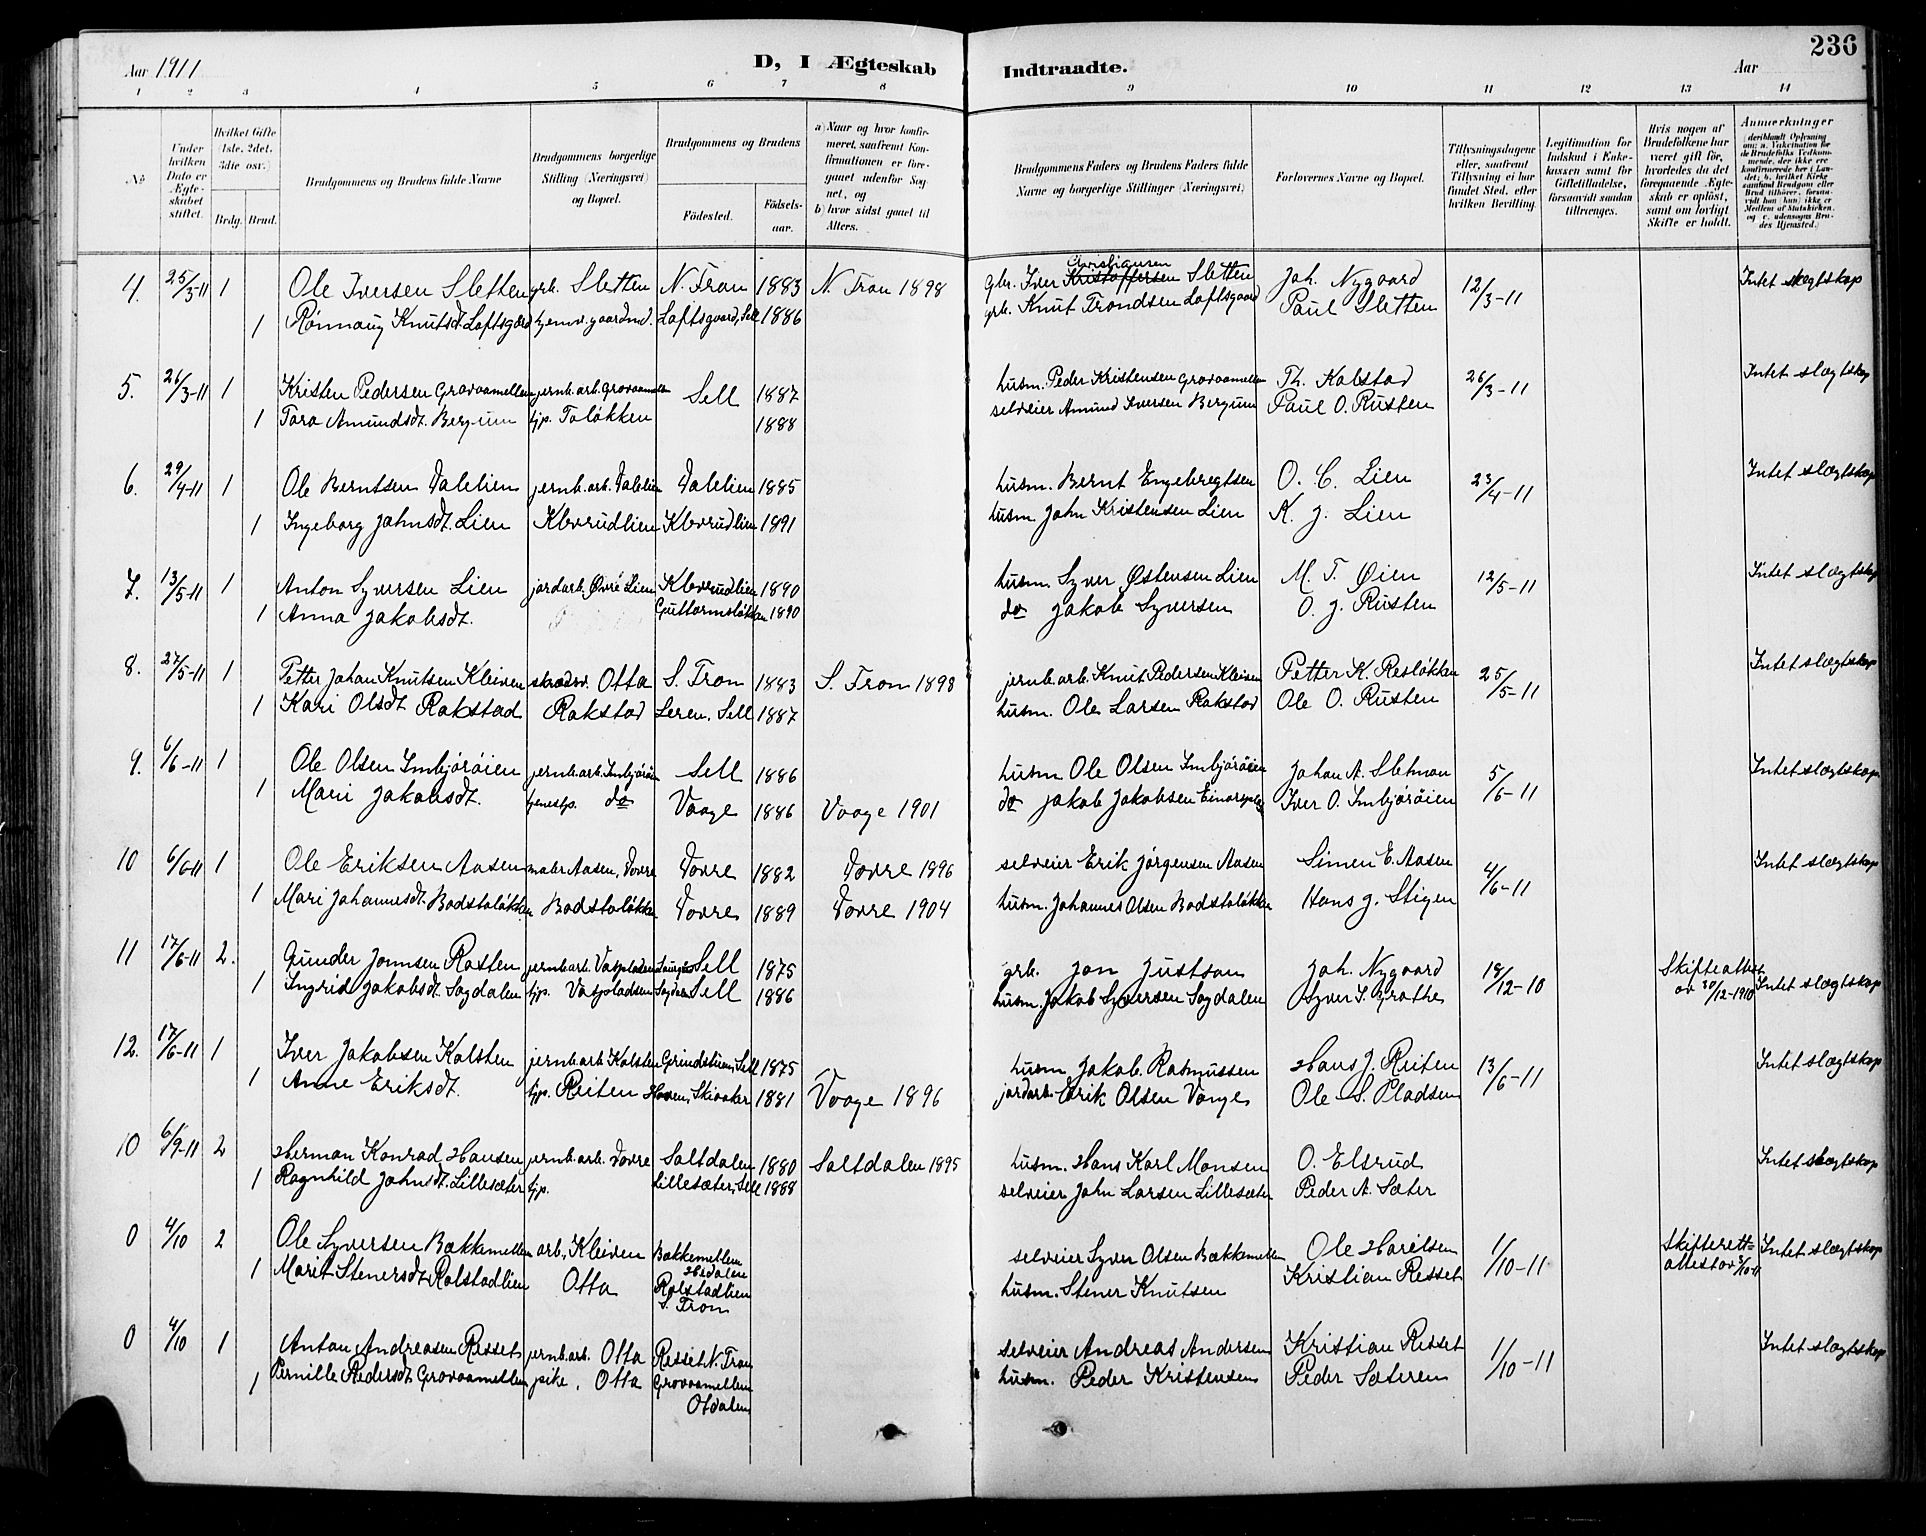 236
Aar 1911
D, I Ægteskab Indtraadte.
Aar
1 2 3 4 5 6 7 8 9 10 11 12 13 14
No.
Under hvilken Dato er Ægteskabet stiftet.
Hvilket Gifte (1ste, 2det, 3die osv.)
Brdg. Brud.
Brudgommens og Brudens fulde Navne
Brudgommens borgerlige Stilling (Næringsvei) og Bopæl.
Brudgommens og Brudens
Fødested.
Fødselsaar.
a) Naar og hvor konfirmeret, saafremt Konfirmationen er foregaaet udenfor Sognet, og
b) hvor sidst gaaet til Alters.
Brudgommens Faders og Brudens Faders fulde Navne og borgerlige Stillinger (Næringsvei)
Forlovernes Navne og Bopæl.
Tillysningsdagene eller, saafremt Tillysning ei har fundet Sted, efter hvilken Bevilling.
Legitimation for Indskud i Enkekassen samt for Giftetilladelse, forsaavidt saadan tiltrænges.
Hvis nogen af Brudefolkene har været gift før, hvorledes da det foregaaende Ægteskab er opløst, samt om lovligt Skifte er holdt.
Anmærkninger
(deriblandt Oplysning om: a. Vakcination for de Brudefolks Vedkommende, der ikke ere konfirmerede her i Landet; b. hvilket Kirkesamfund Brudgom eller Brud tilhører, forsaavidt han (hun) ikke er Medlem af Statskirken, og c. udensogns Brudes Hjemsted.)
4. 25/3-11 1 Ole Iversen Sletten grb. Sletten N. Fron 1883 N. Fron 1898 gbr. Iver Kristoffersen Christiansen Sletten Joh. Nygaard 12/3-11 Intet slægtskap
1 Rønnaug Knutsdt. Loftsgård tjenv. gaardmd. Loftsgaard, Sell 1886 grb. Knut Trondsen Loftsgaard Paul Sletten
5. 26/3-11 1 Kristen Pedersen Grovaamellen jernb. arb. Grovaamellen Sell 1887 husm. Peder Kristensen Grovaamellen Th. Kolstad 26/3-11 Intet slægtskap
1 Tora Amundsdt. Bergum tjp. Toløkken 1888 selveier Amund Iversen Bergum Paul O. Rusten
6. 29/4-11 1 Ole Berntsen Dalelien jernb. arb. Dalelien Dalelien 1885 husm. Bernt Engebregtsen O. C. Lien 23/4-11 Intet slægtskap
1 Ingeborg Johnsdt. Lien Klevrudlien Klevrudlien 1891 husm. John Kristensen Lien K. J. Lien
7. 13/5-11 1 Anton Syversen Lien jordarb. Øvre Lien Klevrudlien 1890 husm. Syver Østensen Lien M. T. Øien 12/5-11 Intet slægtskap
1 Anna Jakobsdt. Guttormsløkken 1890 do Jakob Syversen O. J. Rusten
8. 27/5-11 1 Petter Johan Knutsen Kleiven skrædv. Otta S. Fron 1883 S. Fron 1898 jernb. arb. Knut Pedersen Kleiven Petter K. Resløkken 25/5-11 Intet slægtskap
1 Kari Olsdt Rakstad Rakstad Leren, Sell 1887 husm. Ole Larsen Rakstad Ole O. Rusten
9. 6/6-11 1 Ole Olsen Imbjørøien jernb. arb. Imbjørøien Sell 1886 husm Ole Olsen Imbjørøien Johan A. Sletmon 5/6-11 Intet slægtskap
1 Mari Jakobsdt. tjenestp. do Vaage 1886 Vaage 1901 do Jakob Jakobsen Iver O. Imbjørøien
10 6/6-11 1 Ole Eriksen Aasen maler Aasen, Dovre Dovre 1882 Dovre 1896 selveier Erik Jørgensen Aasen Simen E. Aasen 4/6-11 Intet slægtskap
1 Mari Johannesdt. Badstuløkken Badstuløkken Dovre 1889 Dovre 1904 husm. Johannes Olsen Badstuløkken Hans J. Stigen
11 17/6-11 2. Gunder Jonnsen Rosten jernb arb. Vaspladsen Sell 1875 grb. Jon Justson Joh. Nygaard 18/12-10 Skifteattest av 30/12-1910 Intet slægtskap
1 Ingrid Jakobsdt. Sagdalen tjp. Vaspladsen Sagdalen Sell 1886 husm. Jakob Syversen Sagdalen Syver S. Grothe
12. 17/6-11 1 Iver Jakobsen Kolsten jernb arb Kolsten Grindstuen, Sell 1875 husm Jakob Rasmussen Hans J. Reiten 13/6-11 Intet slægtskap
1 Anne Eriksdt. tjp. Reiten Skiaaker 1881 Vaage 1896 jordarb. Erik Olsen Vange Ole S. Pladsen
10 6/9-11 2 Herman Konrad Hansen jernb. arb. Dovre Saltdalen 1880 Saltdalen 1895 husm. Hans Karl Monsen O. Elstrud Intet slægtskap
1 Ragnhild Johnsdt. Lillesæter tjp. Lillesæter, Sell 1888 selveier John Larsen Lillesæter Peder A. Sæter
0 4/10 2 Ole Syversen Bækkemellen arb. Kleiven Bækkemellen Hedalen selveier Syver Olsen Bækkemellen Ole Harildsen 1/10-11 Skifterettattest av 3/10-11 Intet slægtskap
1 Marit Stenersdt. Rolstadlien Otta Rolstadlien S. Fron husm. Stener Knutsen Kristian Resset
0 4/10 1 Anton Andreasen Resset jernb. arb. Otta Resset N. Fron selveier Andreas Andersen Kristian Resset 1/10-11 Intet slægtskap
1 Pernille Pedersdt Grovaamellen pike, Otta Grovaamellen Otdalen husm. Peder Kristensen Peder Sæteren